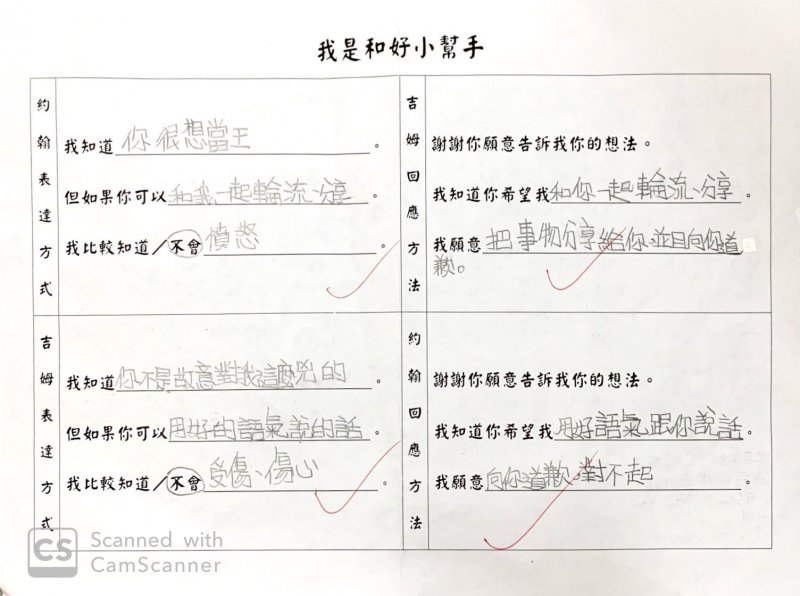 我是和好小幫手
約翰表達方式
我知道你很想當王。
但如果你可以和我一起輪流、分享
我比較知道／不會憤怒。
吉姆回應方法
謝謝你願意告訴我你的想法。
我知道你希望我和你一起輪流、分享。
我願意把事物分享給你、並且向你道
歉。
吉姆表達方式
我知道你不是故意對我這麼兇的。
但如果你可以用好的語氣說的話
我比較知道／不會受傷、傷心。
約翰回應方法
謝謝你願意告訴我你的想法。
我知道你希望我用好語氣跟你說話。
我願意向你道歉、對不起。
CS Scanned with
CamScanner